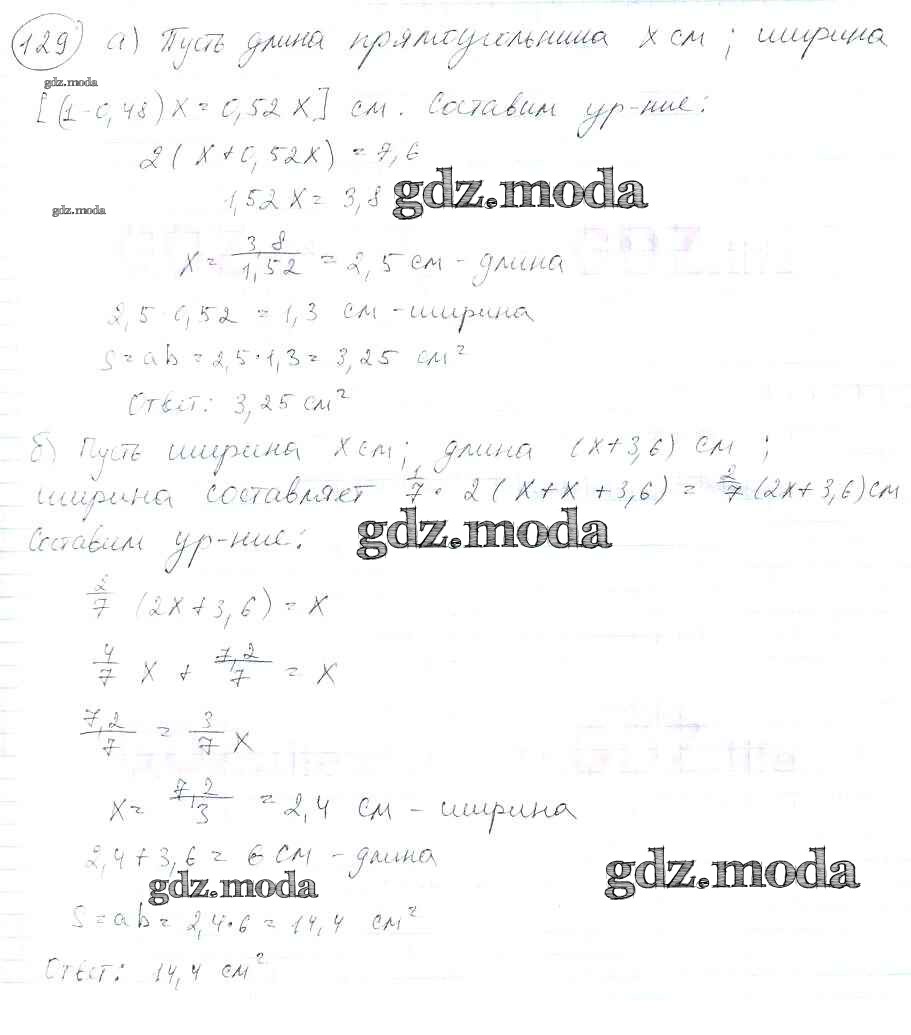 129 а) Пусть длина прямоугольника x см; ширина
gdz.moda
[(1-0,48)x = 0,52x] см. Составим ур-ние:
2(x+0,52x) = 7,6
1,52x = 3,8
gdz.moda
gdz.moda
x = 3,8/1,52 = 2,5 см - длина
2,5·0,52 = 1,3 см - ширина
S = ab = 2,5·1,3 = 3,25 см²
Ответ: 3,25 см²
б) Пусть ширина x см; длина (x+3,6) см;
ширина составляет 1/7 · 2(x+x+3,6) = 2/7 (2x+3,6) см
Составим ур-ние:
gdz.moda
2/7 (2x+3,6) = x
4/7 x + 7,2/7 = x
7,2/7 = 3/7 x
x = 7,2/3 = 2,4 см - ширина
2,4+3,6 = 6 см - длина
gdz.moda
gdz.moda
S = ab = 2,4·6 = 14,4 см²
Ответ: 14,4 см²